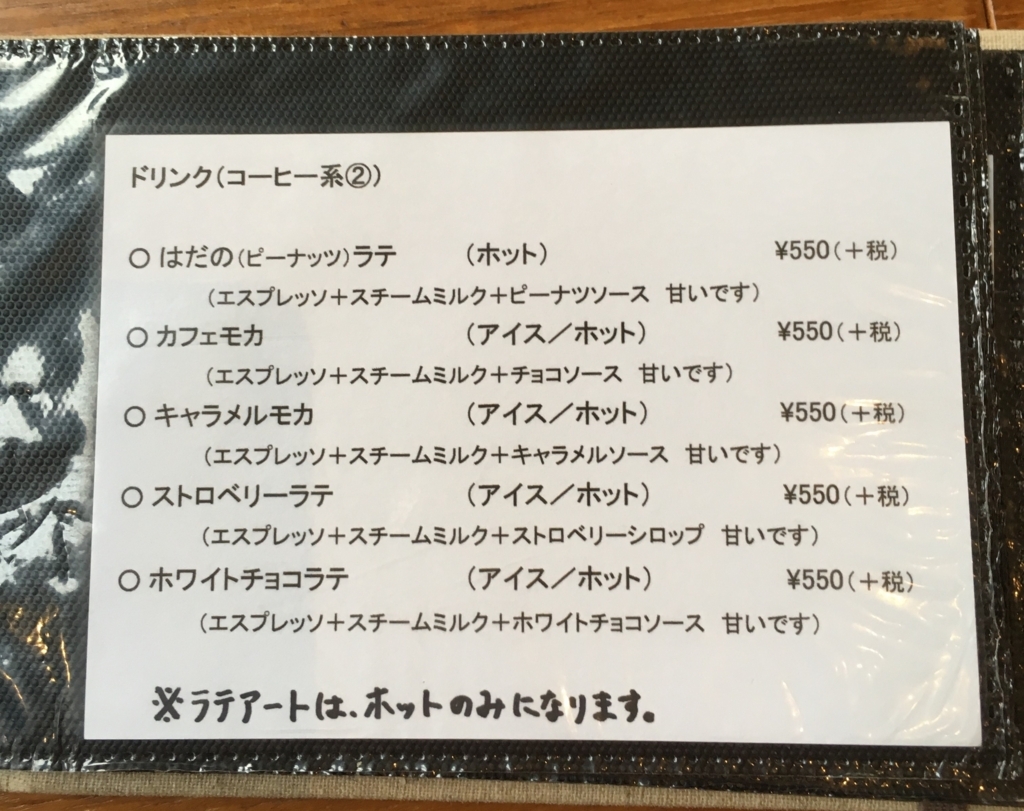 ドリンク（コーヒー系②）
○ はだの（ピーナッツ）ラテ （ホット） ¥550（＋税）
（エスプレッソ＋スチームミルク＋ピーナツソース 甘いです）
○ カフェモカ （アイス／ホット） ¥550（＋税）
（エスプレッソ＋スチームミルク＋チョコソース 甘いです）
○ キャラメルモカ （アイス／ホット） ¥550（＋税）
（エスプレッソ＋スチームミルク＋キャラメルソース 甘いです）
○ ストロベリーラテ （アイス／ホット） ¥550（＋税）
（エスプレッソ＋スチームミルク＋ストロベリーシロップ 甘いです）
○ ホワイトチョコラテ （アイス／ホット） ¥550（＋税）
（エスプレッソ＋スチームミルク＋ホワイトチョコソース 甘いです）
※ラテアートは、ホットのみになります。